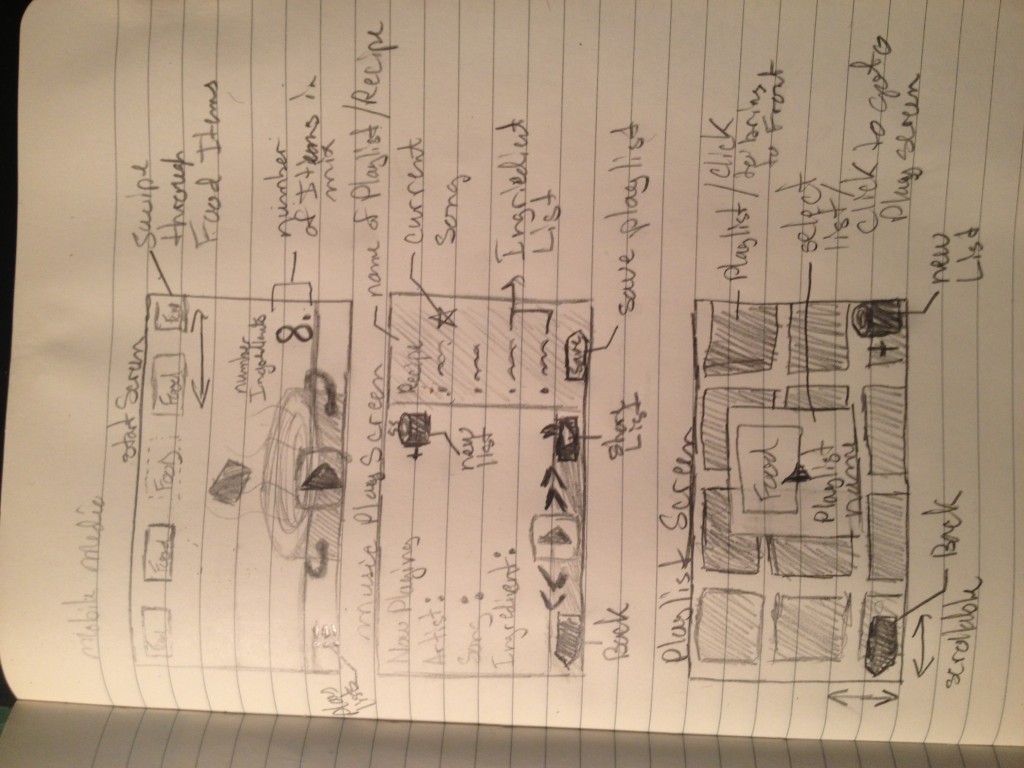 Mobile Media
Start Screen
Food
Food
Food
Food
Swipe
through
Food Items
number
Ingredients
8.
number
of Items in
mix
Music Play Screen
name of Playlist/Recipe
Now Playing
Artist:
Song:
Ingredient:
+
new
list
Recipe
current
song
Ingriedient
List
save
save playlist
<<
>>
Back
short
List
Playlist Screen
Food
Playlist
name
Playlist/Click
to bring
to Front
select
list/
Click to goto
Play screen
+
new
List
Back
scrollable